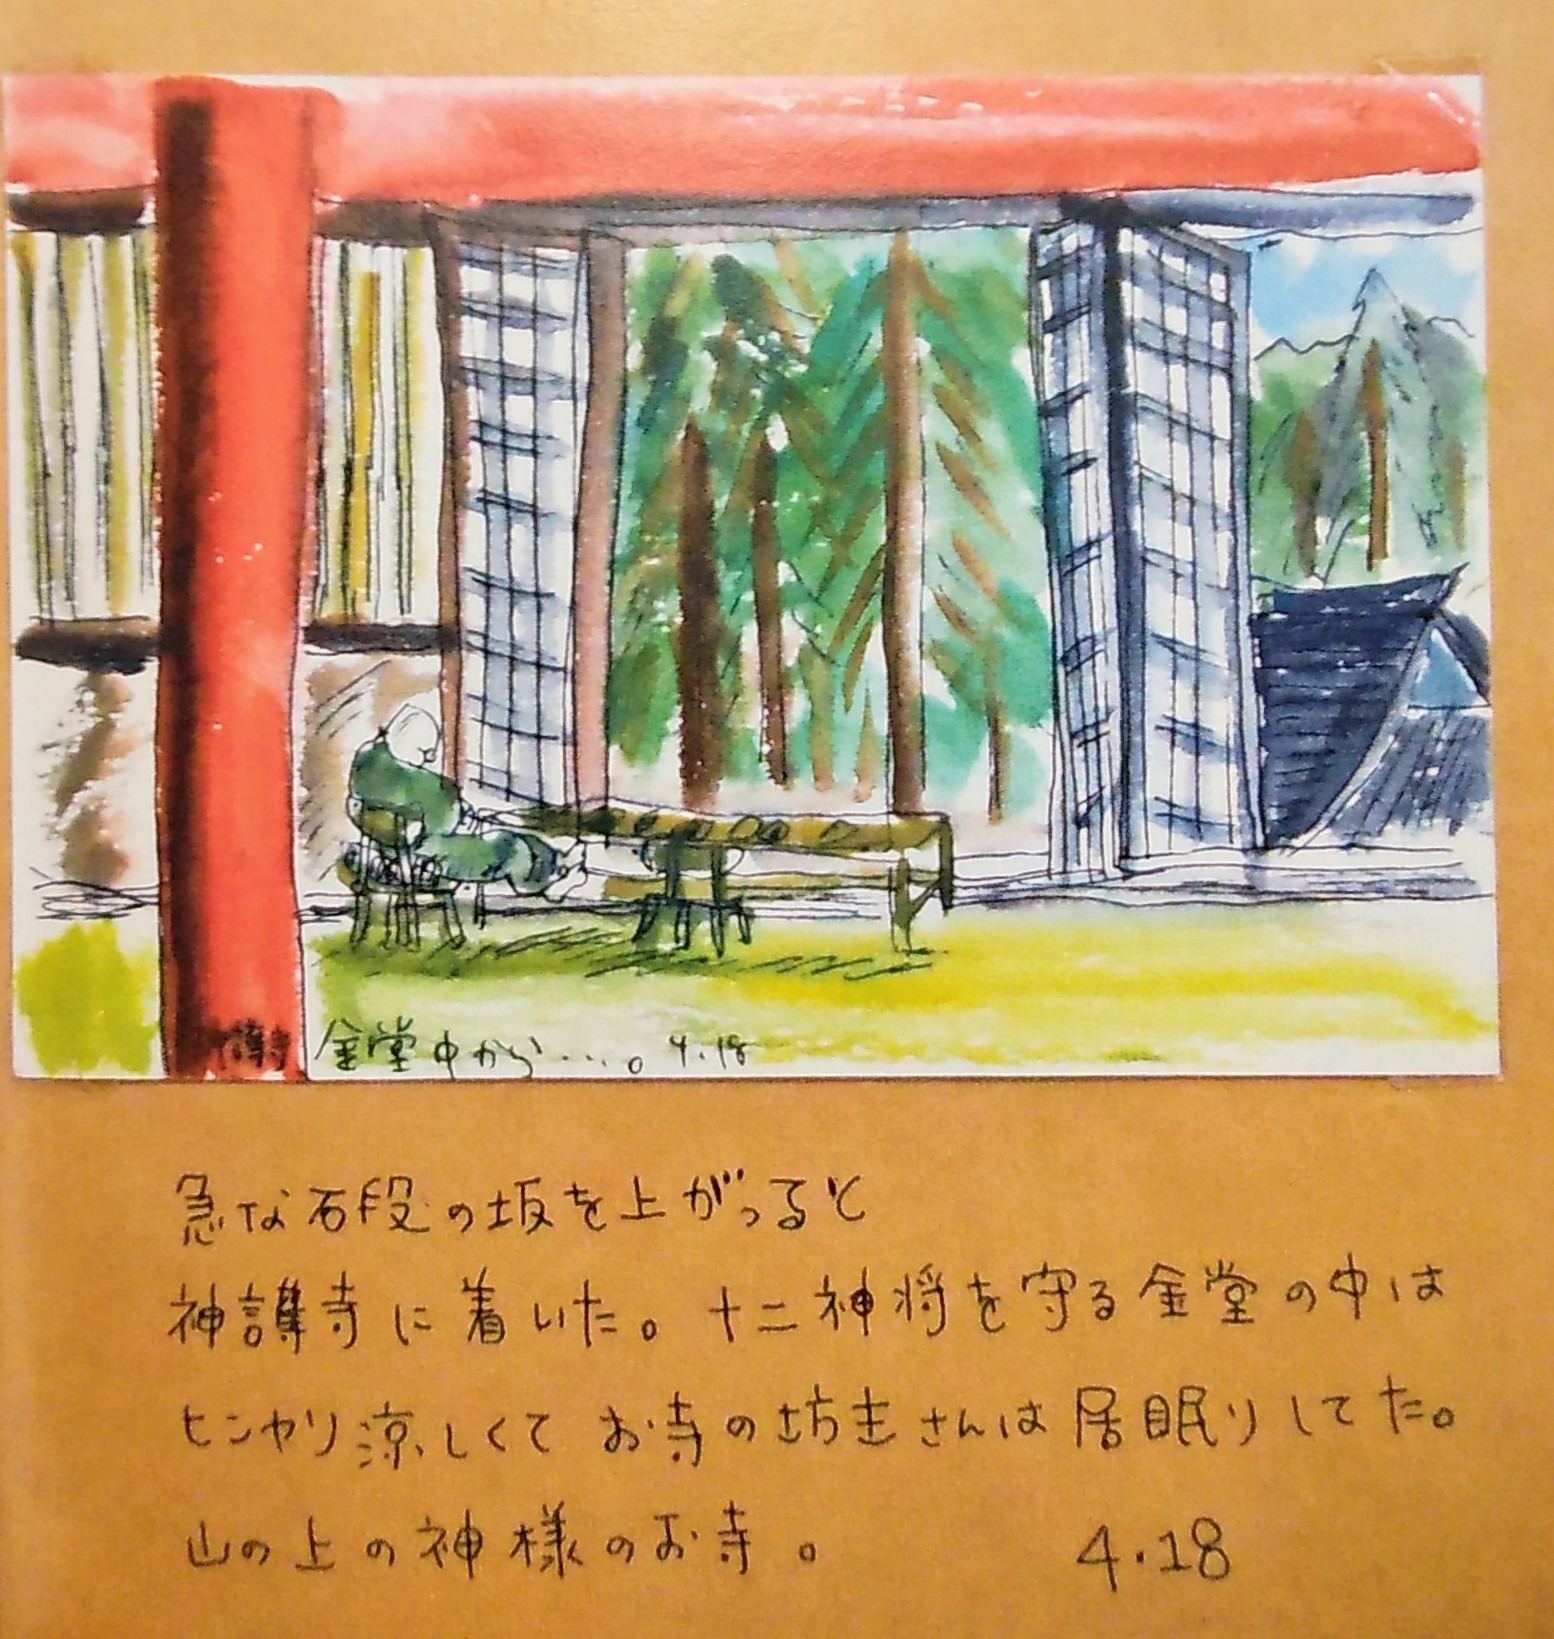 護寺 金堂中から・・・・。 4.18
急な石段の坂を上がっると
神護寺に着いた。十二神将を守る金堂の中は
ヒンヤリ涼しくて お寺の坊主さんは居眠りしてた。
山の上の神様のお寺。 4.18